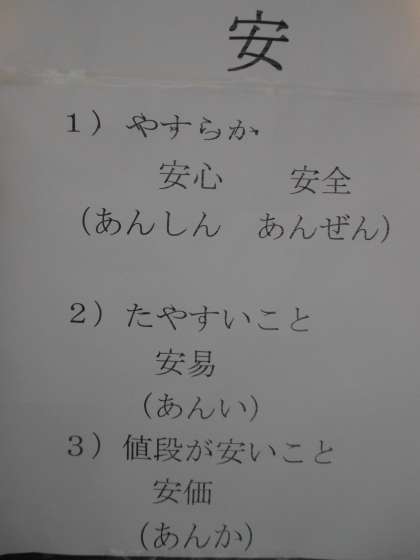 安
1）やすらか
安心　安全
（あんしん　あんぜん）
2）たやすいこと
安易
（あんい）
3）値段が安いこと
安価
（あんか）